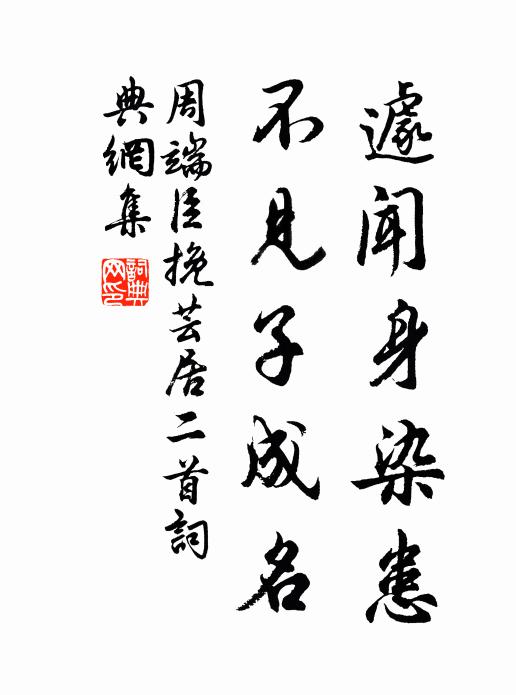 遽聞身染恙
不見子成名
周端臣挽芸居二首詞
典網集
詞典
网印